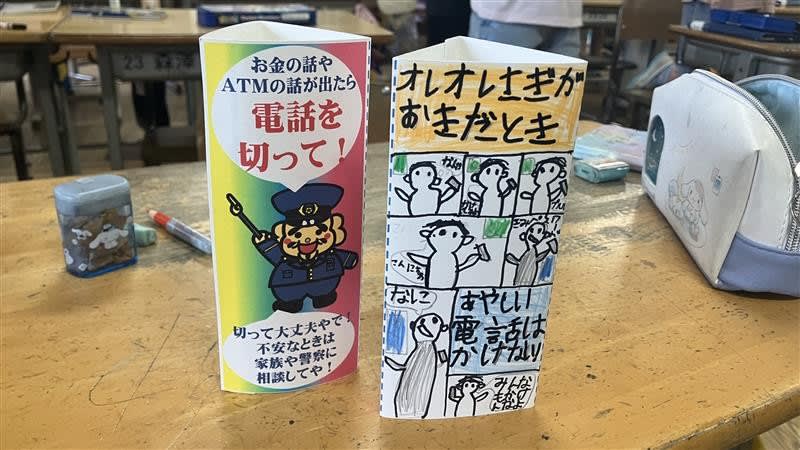 お金の話や
ATMの話が出たら
電話を
切って！
切って大丈夫やで！
不安なときは
家族や警察に
相談してや！
オレオレさぎが
おきたとき
なしこ
あやしい
電話は
かけない
みんな
23